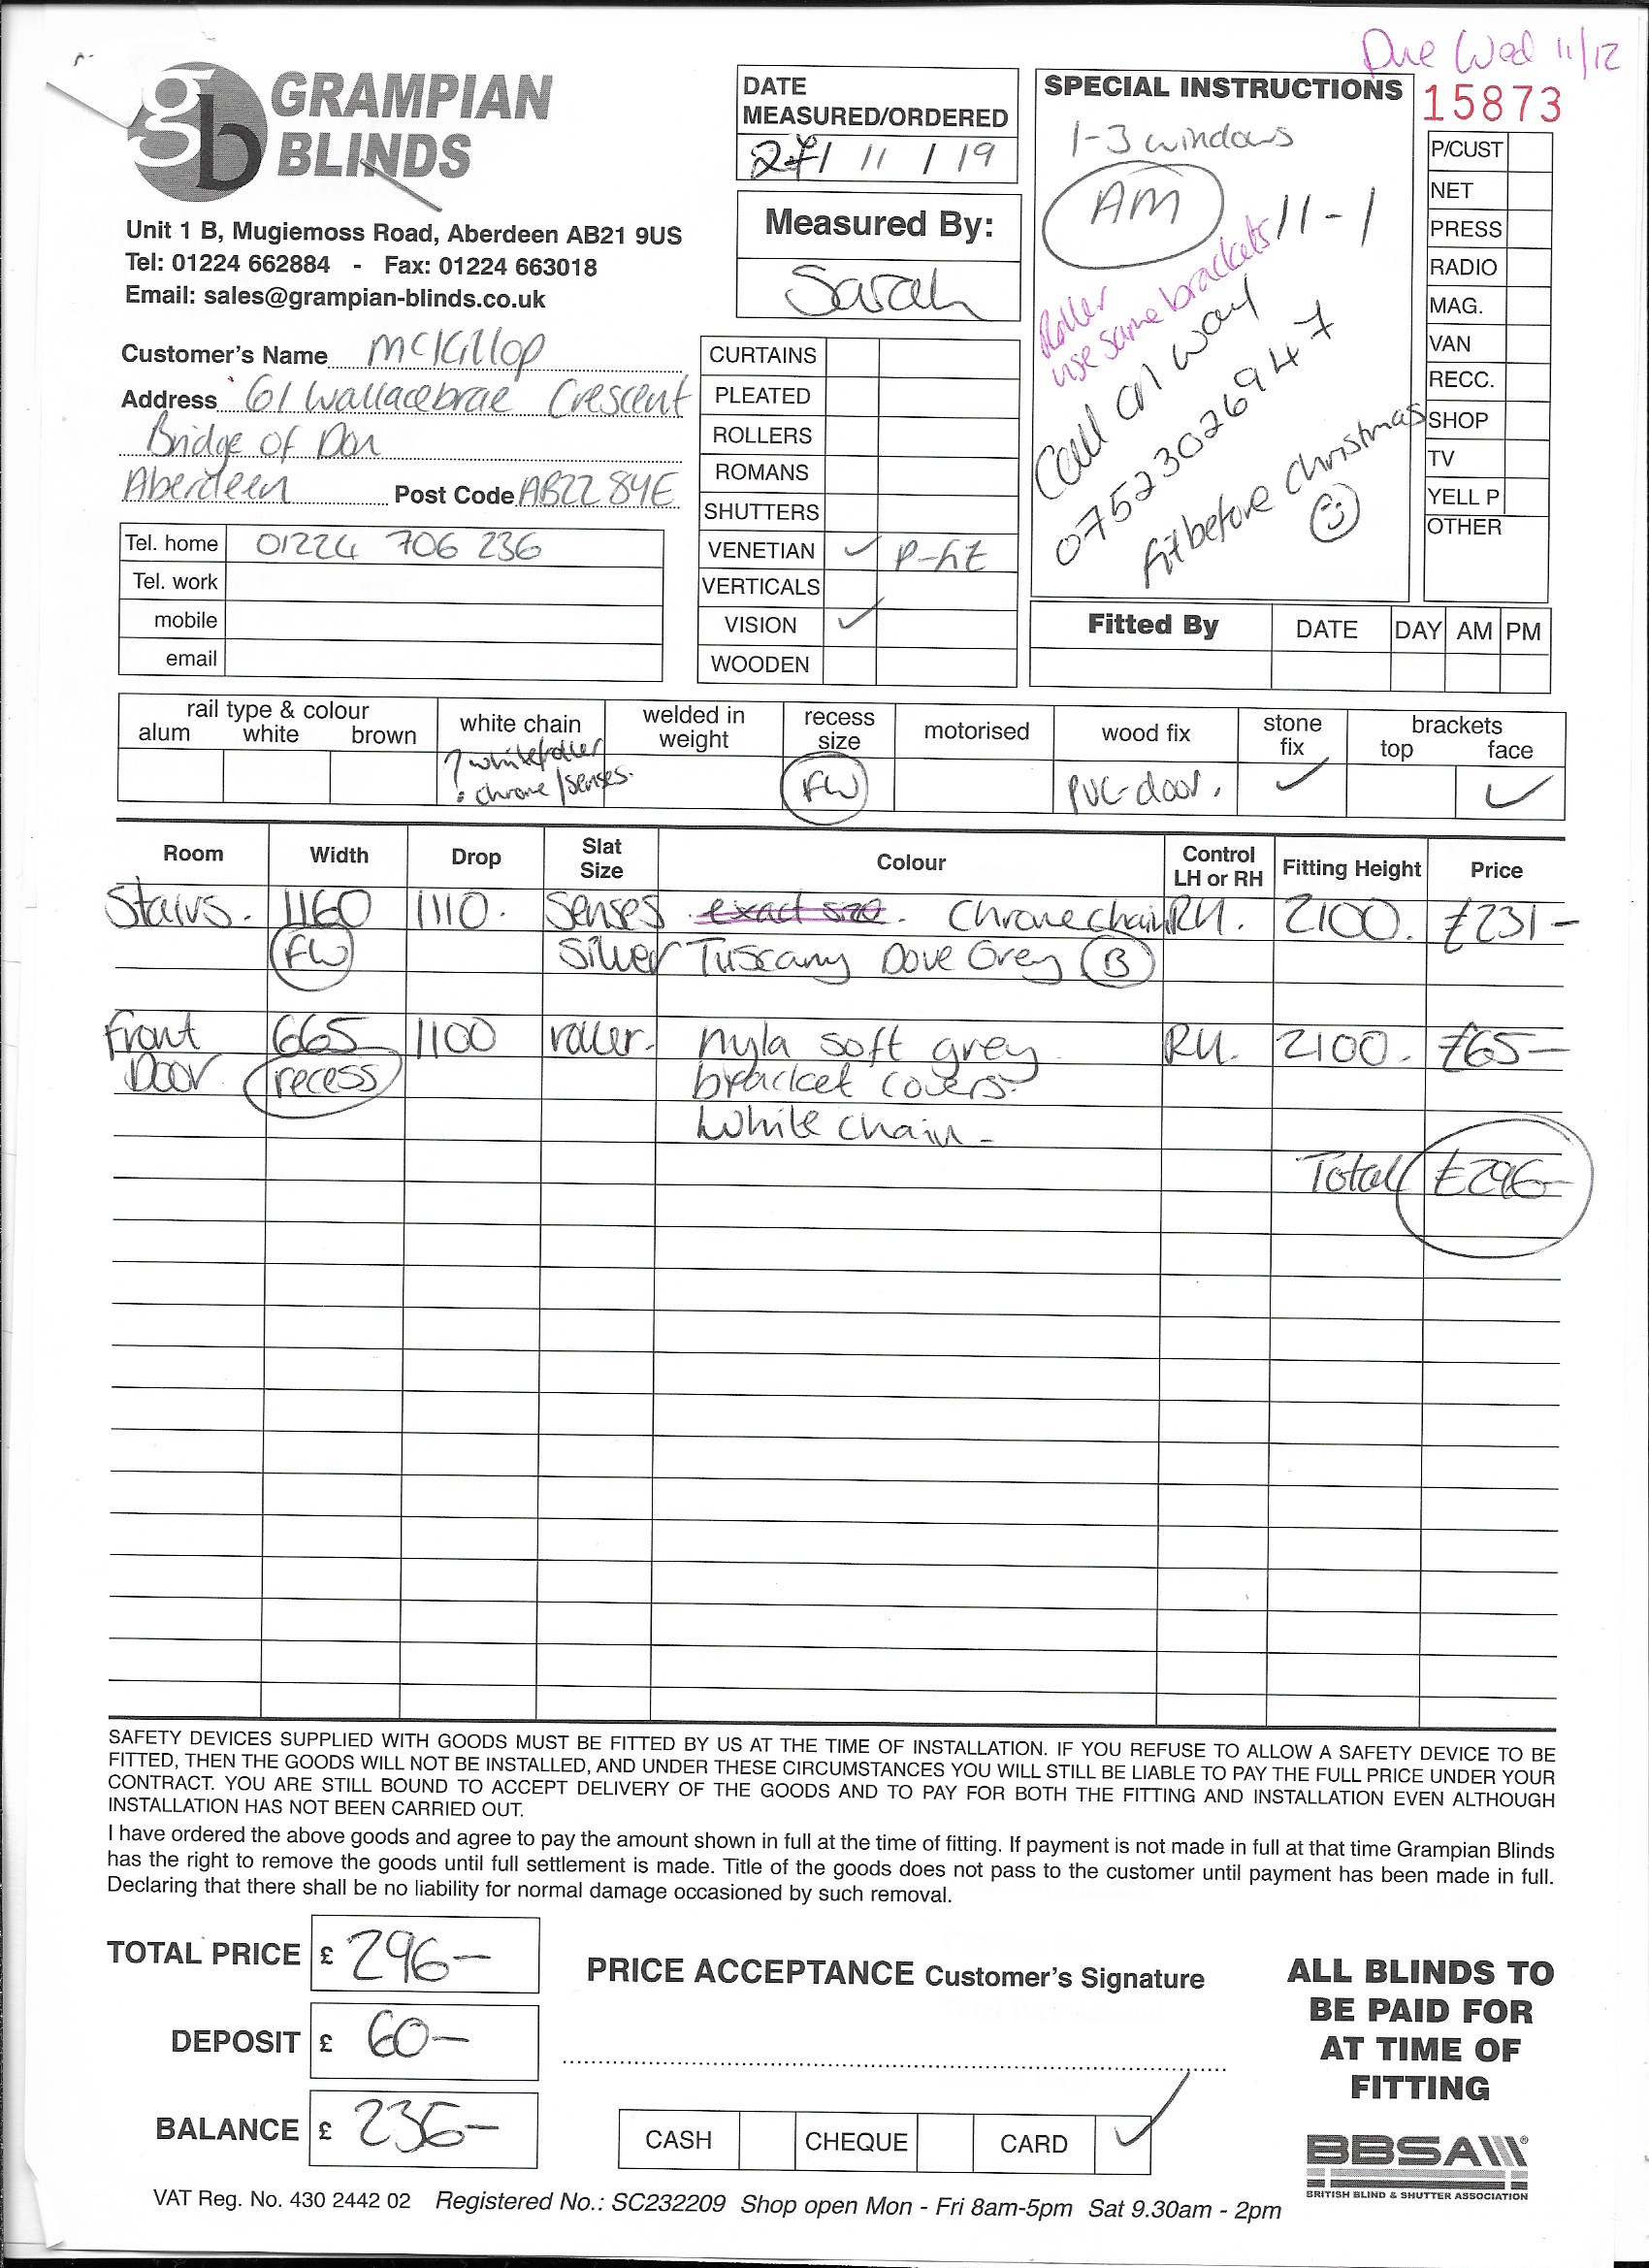 Due Wed 11/12
gb GRAMPIAN
BLINDS
Unit 1 B, Mugiemoss Road, Aberdeen AB21 9US
Tel: 01224 662884 - Fax: 01224 663018
Email: sales@grampian-blinds.co.uk
Customer's Name McKillop
Address 61 Wallacebrae Crescent
Bridge of Don
Aberdeen Post Code AB22 8YE
Tel. home 01224 706 236
Tel. work
mobile
email
DATE
MEASURED/ORDERED
27/11/19
Measured By:
Sarah
CURTAINS
PLEATED
ROLLERS
ROMANS
SHUTTERS
VENETIAN ✓ P-fit
VERTICALS
VISION ✓
WOODEN
SPECIAL INSTRUCTIONS
1-3 windows
AM 11-1
Roller
use same brackets
Call on way
07523026947
fit before christmas
15873
P/CUST
NET
PRESS
RADIO
MAG.
VAN
RECC.
SHOP
TV
YELL P
OTHER
Fitted By DATE DAY AM PM
rail type & colour
alum white brown
white chain
? white/roller
: chrome/senses.
welded in
weight
recess
size
FW
motorised
wood fix
PVC-door.
stone
fix
✓
brackets
top face
✓
Room Width Drop Slat Size Colour Control LH or RH Fitting Height Price
Stairs. 1160 1110. Senses exact size. Chrome chain RH. 2100. £231-
FW Silver Tuscany Dove Grey B
Front 665 1100 roller. nyla soft grey RH. 2100. £65-
Door recess bracket covers.
White chain-
Total £296-
SAFETY DEVICES SUPPLIED WITH GOODS MUST BE FITTED BY US AT THE TIME OF INSTALLATION. IF YOU REFUSE TO ALLOW A SAFETY DEVICE TO BE
FITTED, THEN THE GOODS WILL NOT BE INSTALLED, AND UNDER THESE CIRCUMSTANCES YOU WILL STILL BE LIABLE TO PAY THE FULL PRICE UNDER YOUR
CONTRACT. YOU ARE STILL BOUND TO ACCEPT DELIVERY OF THE GOODS AND TO PAY FOR BOTH THE FITTING AND INSTALLATION EVEN ALTHOUGH
INSTALLATION HAS NOT BEEN CARRIED OUT.
I have ordered the above goods and agree to pay the amount shown in full at the time of fitting. If payment is not made in full at that time Grampian Blinds
has the right to remove the goods until full settlement is made. Title of the goods does not pass to the customer until payment has been made in full.
Declaring that there shall be no liability for normal damage occasioned by such removal.
TOTAL PRICE £ 296-
DEPOSIT £ 60-
BALANCE £ 236-
PRICE ACCEPTANCE Customer's Signature
CASH CHEQUE CARD ✓
ALL BLINDS TO
BE PAID FOR
AT TIME OF
FITTING
BBSA
BRITISH BLIND & SHUTTER ASSOCIATION
VAT Reg. No. 430 2442 02 Registered No.: SC232209 Shop open Mon - Fri 8am-5pm Sat 9.30am - 2pm